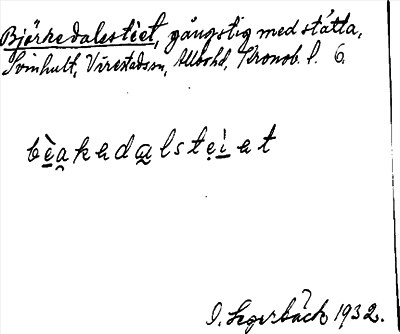 Björkedalsstiet, gångstig med stätta,
Svinhult, Virestads sn, Allbo hd, Kronob. l. 6.
bèakadalsteìat
I. Segerbäck 1932.